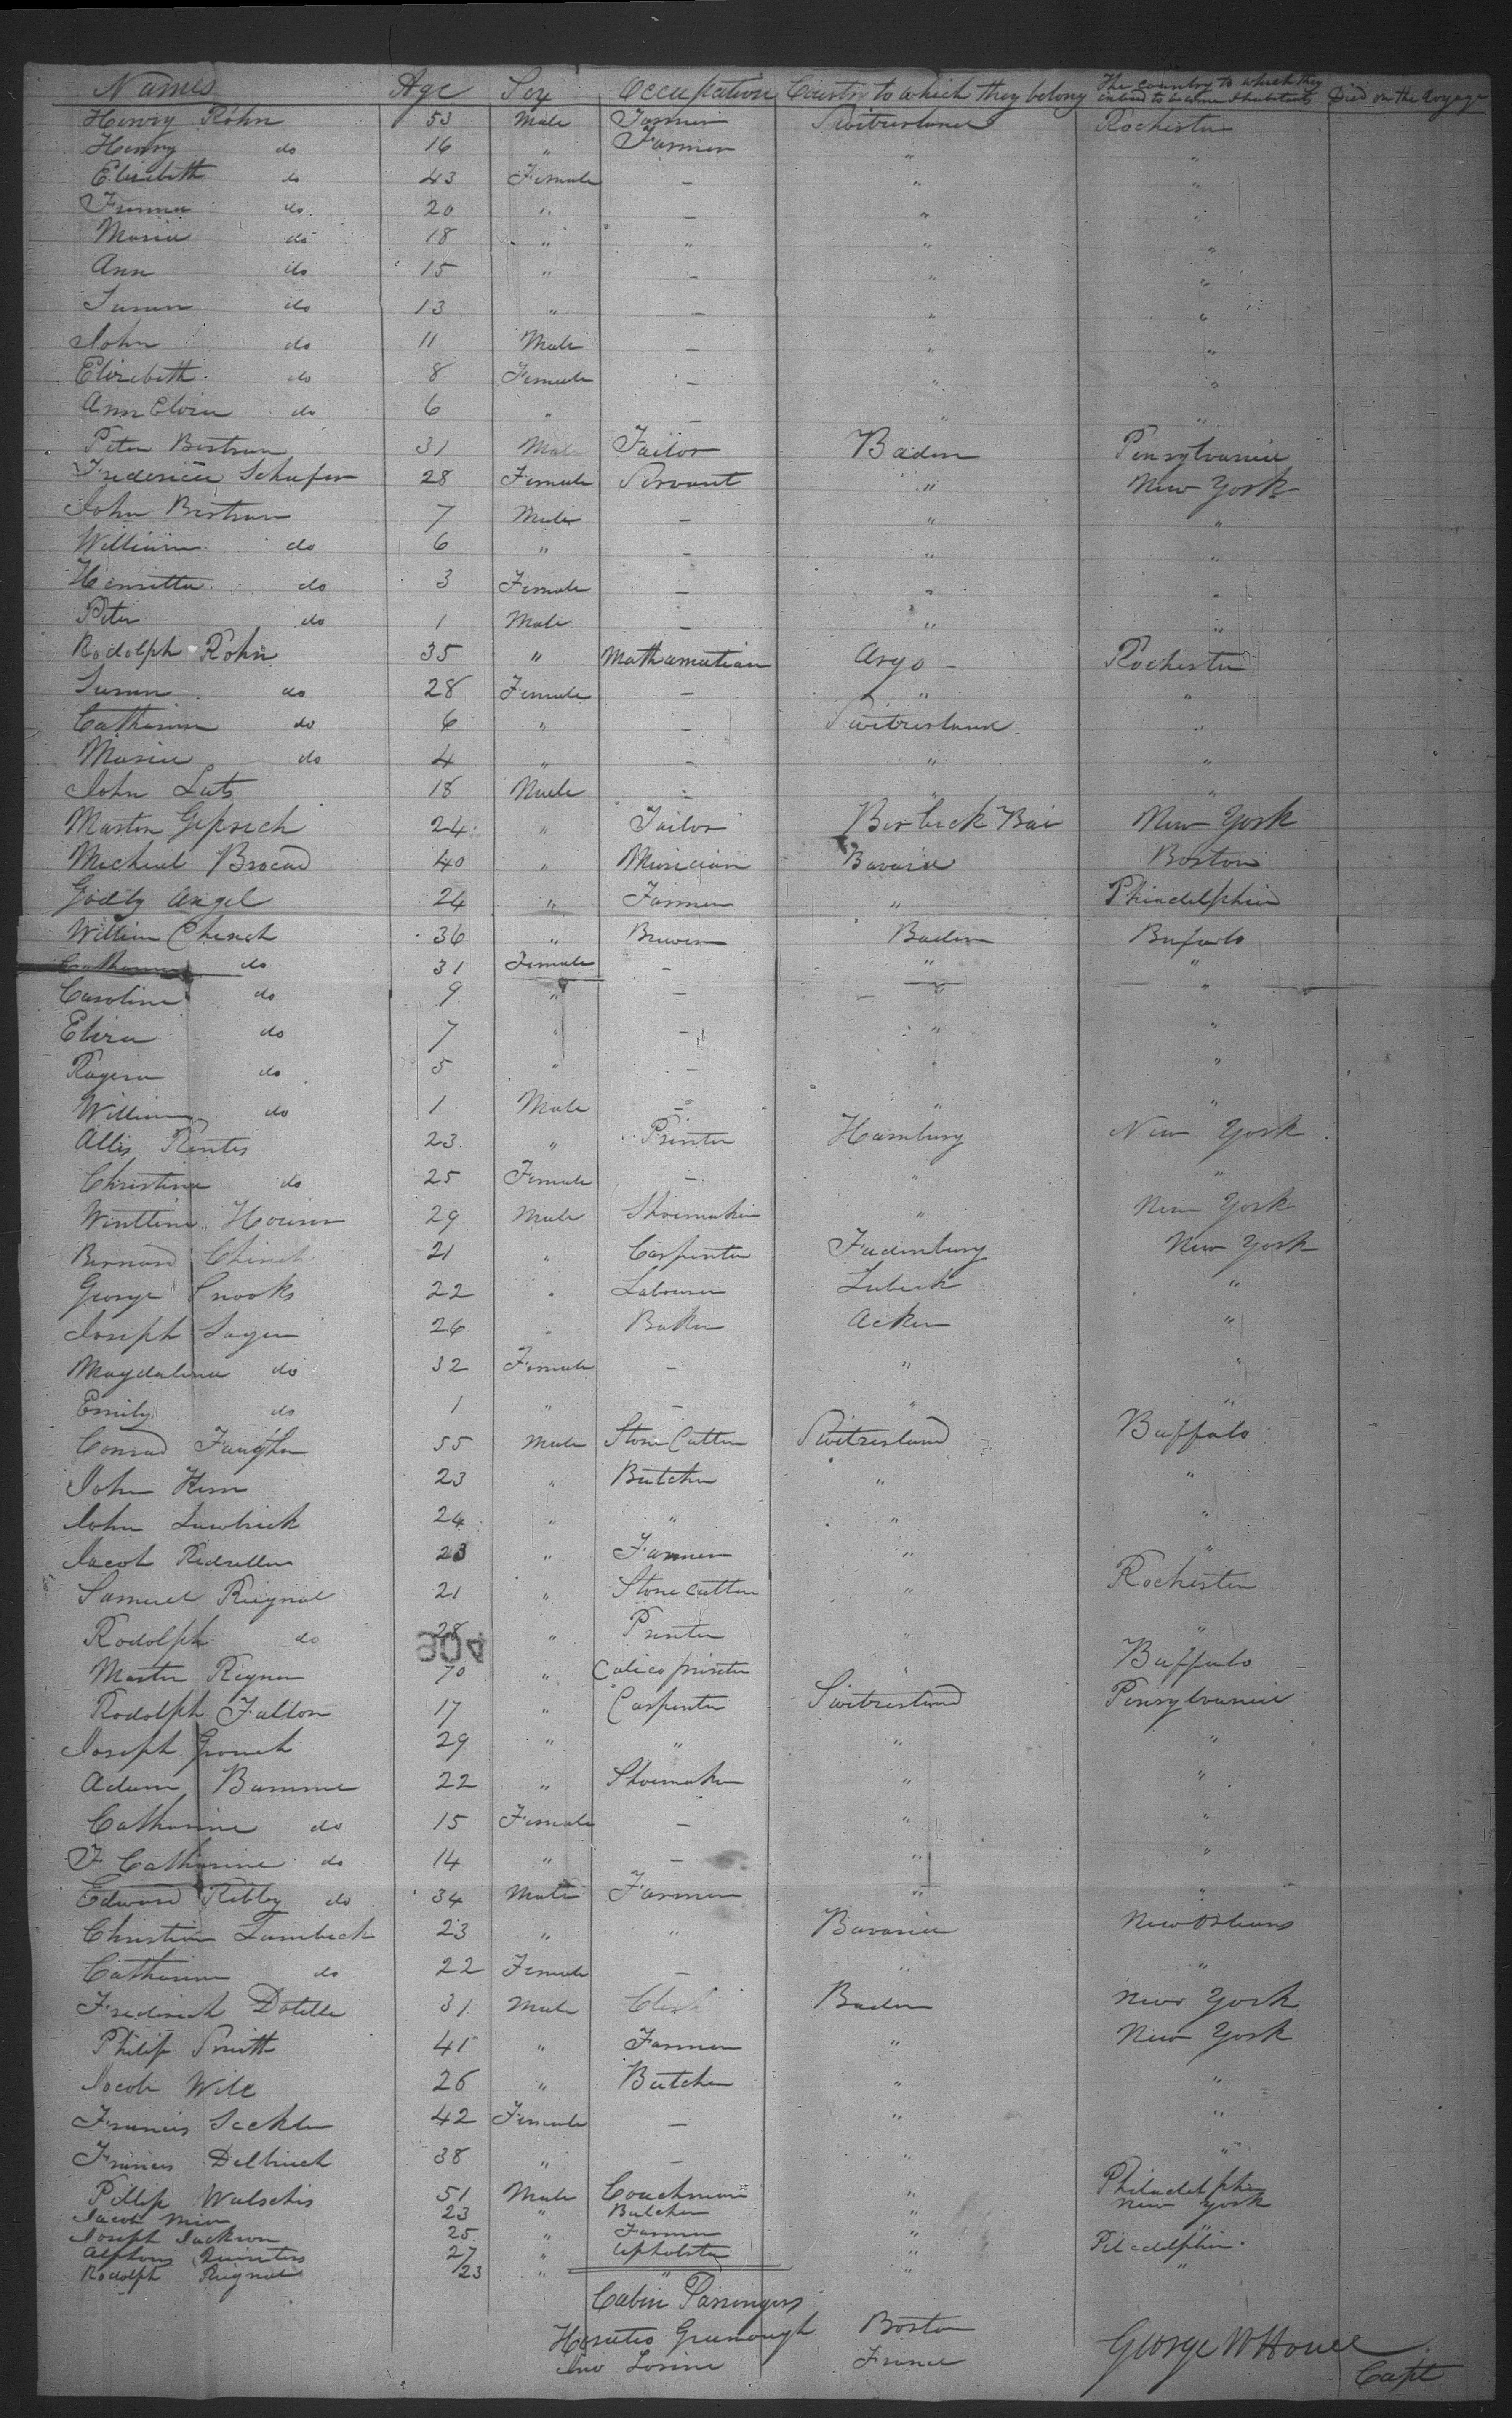 Names Age Sex Occupation Country to which they belong The Country to which they intend to become Inhabitants Died on the Voyage
Henry Rohn 53 Male Farmer Switzerland Rochester
Henry do 16 " Farmer " "
Elizebeth do 43 Female - " "
do 20 " - " "
Maria do 18 " " " "
Ann do 15 " - " "
Susan do 13 " - " "
John do 11 Male - " "
Elizebeth do 8 Female - " "
Ann Eliza do 6 " - " "
Peter Bertram 31 Male Tailor Baden Pensylvania
Frederica Schafer 28 Female Servant " New York
John Bertram 7 Male - " "
William do 6 " - " "
Henretta do 3 Female - " "
Peter do 1 Male - " "
Rodolph Rohn 35 " Mathamatian Argo - Rochester
Susan do 28 Female - " "
Catharine do 6 " - Switzerland "
Maria do 4 " - " "
John Luts 18 Male - " "
Martin 24 " Tailor New York
Micheal Brocad 40 " Musician Bavaria Boston
Godly Angel 24 " Farmer " Phiadelphia
William Chench 36 " Brewer Baden Bufalo
Catharine do 31 Female - " "
Caroline do 9 " - " "
Eliza do 7 " - " "
do 5 " - " "
William do 1 Male - " "
Allis Rentes 23 " Printer Hamburg New York
Christina do 25 Female - " "
Houser 29 Male Shoemaker " New York
Bernard Chench 21 " Carpenter New York
George Snooks 22 " Labourer Lubeck "
Joseph Sager 26 " Baker Acken "
Magdalena do 32 Female - " "
Emily do 1 " - " "
Conrad 55 Male Stone Cutter Switzerland Buffalo
John 23 " Butcher " "
John 24 " " " "
Jacob 23 " Farmer " "
Samuel Reignal 21 " Stone cutter " Rochester
Rodolph do 28 " Printer " "
304
Martin Reyner 70 " Calico printer " Buffalo
Rodolph Falton 17 " Carpenter Switzerland Pensylvania
Joseph Grouch 29 " " " "
Adam Bamme 22 " Shoemaker " "
Catharine do 15 Female - " "
F Catharine do 14 " - " "
Edward Ribby do 34 Male Farmer " "
Christian Lambeck 23 " " Bavaria New Orleans
Catharine do 22 Female - " "
Fredirick Dotelle 31 Male Clerk Baden New York
Philip Smith 41 " Farmer " New York
Jacob Wile 26 " Butcher " "
Francis Seckler 42 Female - " "
Francis Delbruch 38 " - " "
Pillip Walschis 51 Male Coachman " Philadelphia
Jacob Mier 23 " Butcher " New York
Joseph Jackson 25 " Farmer " "
Alphons Quinters 27 " Upholster " Piladelphia.
Rodolph Reignal 23 " " " "
Cabin Passengers
Horatio Greenough Boston
Lorine France
George W Howe
Capt